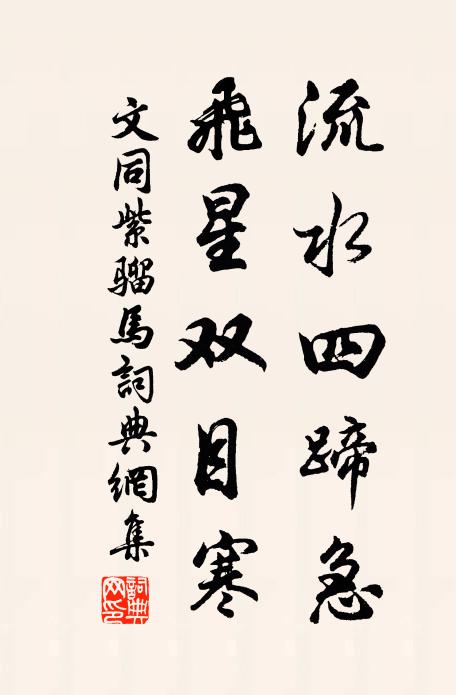 流水四蹄急
飛星双目寒
文同紫騮馬詞典網集
詞典網印